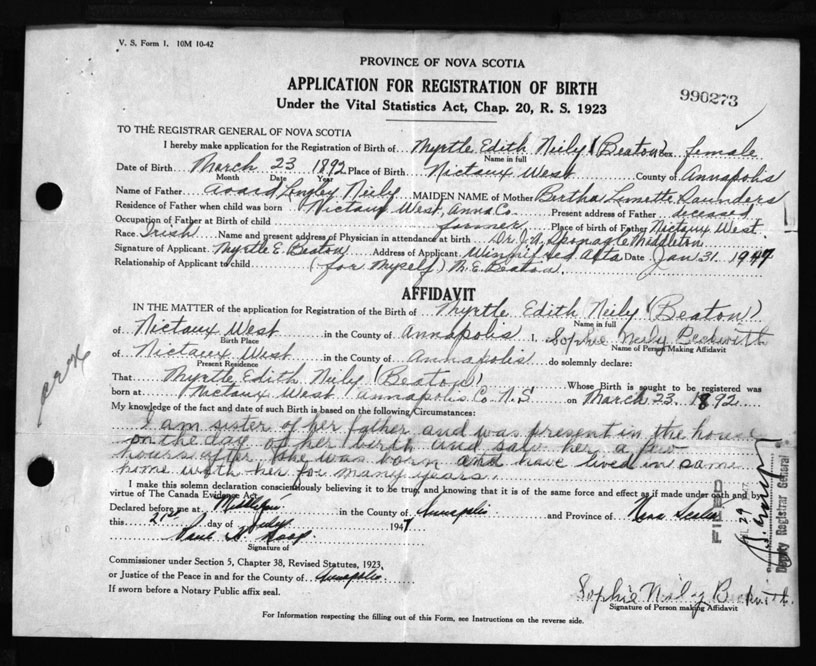 V. S. Form 1. 10M 10-42
PROVINCE OF NOVA SCOTIA
APPLICATION FOR REGISTRATION OF BIRTH
Under the Vital Statistics Act, Chap. 20, R. S. 1923
990273
TO THE REGISTRAR GENERAL OF NOVA SCOTIA
I hereby make application for the Registration of Birth of Myrtle Edith Neily (Beaton) Sex female
Name in full
Date of Birth March 23 1892 Place of Birth Nictaux West County of Annapolis
Month Date Year
Name of Father Neily MAIDEN NAME of Mother Bertha Saunders
Residence of Father when child was born Nictaux West, Anna Co. Present address of Father deceased
Occupation of Father at Birth of child farmer Place of birth of Father Nictaux West.
Race Irish Name and present address of Physician in attendance at birth Dr. J. A. Sponagle Middleton
Signature of Applicant Myrtle E. Beaton Address of Applicant Winnifred Alta Date Jan 31 1947
Relationship of Applicant to child (for myself) M. E. Beaton.
AFFIDAVIT
IN THE MATTER of the application for Registration of the Birth of Myrtle Edith Neily (Beaton)
Name in full
of Nictaux West in the County of Annapolis I, Sophie Neily Beckwith
Birth Place Name of Person Making Affidavit
of Nictaux West in the County of Annapolis do solemnly declare:
Present Residence
That Myrtle Edith Neily (Beaton) Whose Birth is sought to be registered was
born at Nictaux West Annapolis Co. N.S. on March 23 1892
My knowledge of the fact and date of such Birth is based on the following Circumstances:
I am sister of her father and was present in the house
on the day of her birth and saw her a few
hours after she was born and have lived in same
home with her for many years.
I make this solemn declaration conscientiously believing it to be true, and knowing that it is of the same force and effect as if made under oath and by
virtue of The Canada Evidence Act.
Declared before me at Middleton in the County of Annapolis and Province of Nova Scotia
this 21st day of July 1947
Signature of
Commissioner under Section 5, Chapter 38, Revised Statutes, 1923,
or Justice of the Peace in and for the County of Annapolis
If sworn before a Notary Public affix seal.
Sophie Neily Beckwith.
Signature of Person making Affidavit
For Information respecting the filling out of this Form, see Instructions on the reverse side.
FILED
Deputy Registrar General